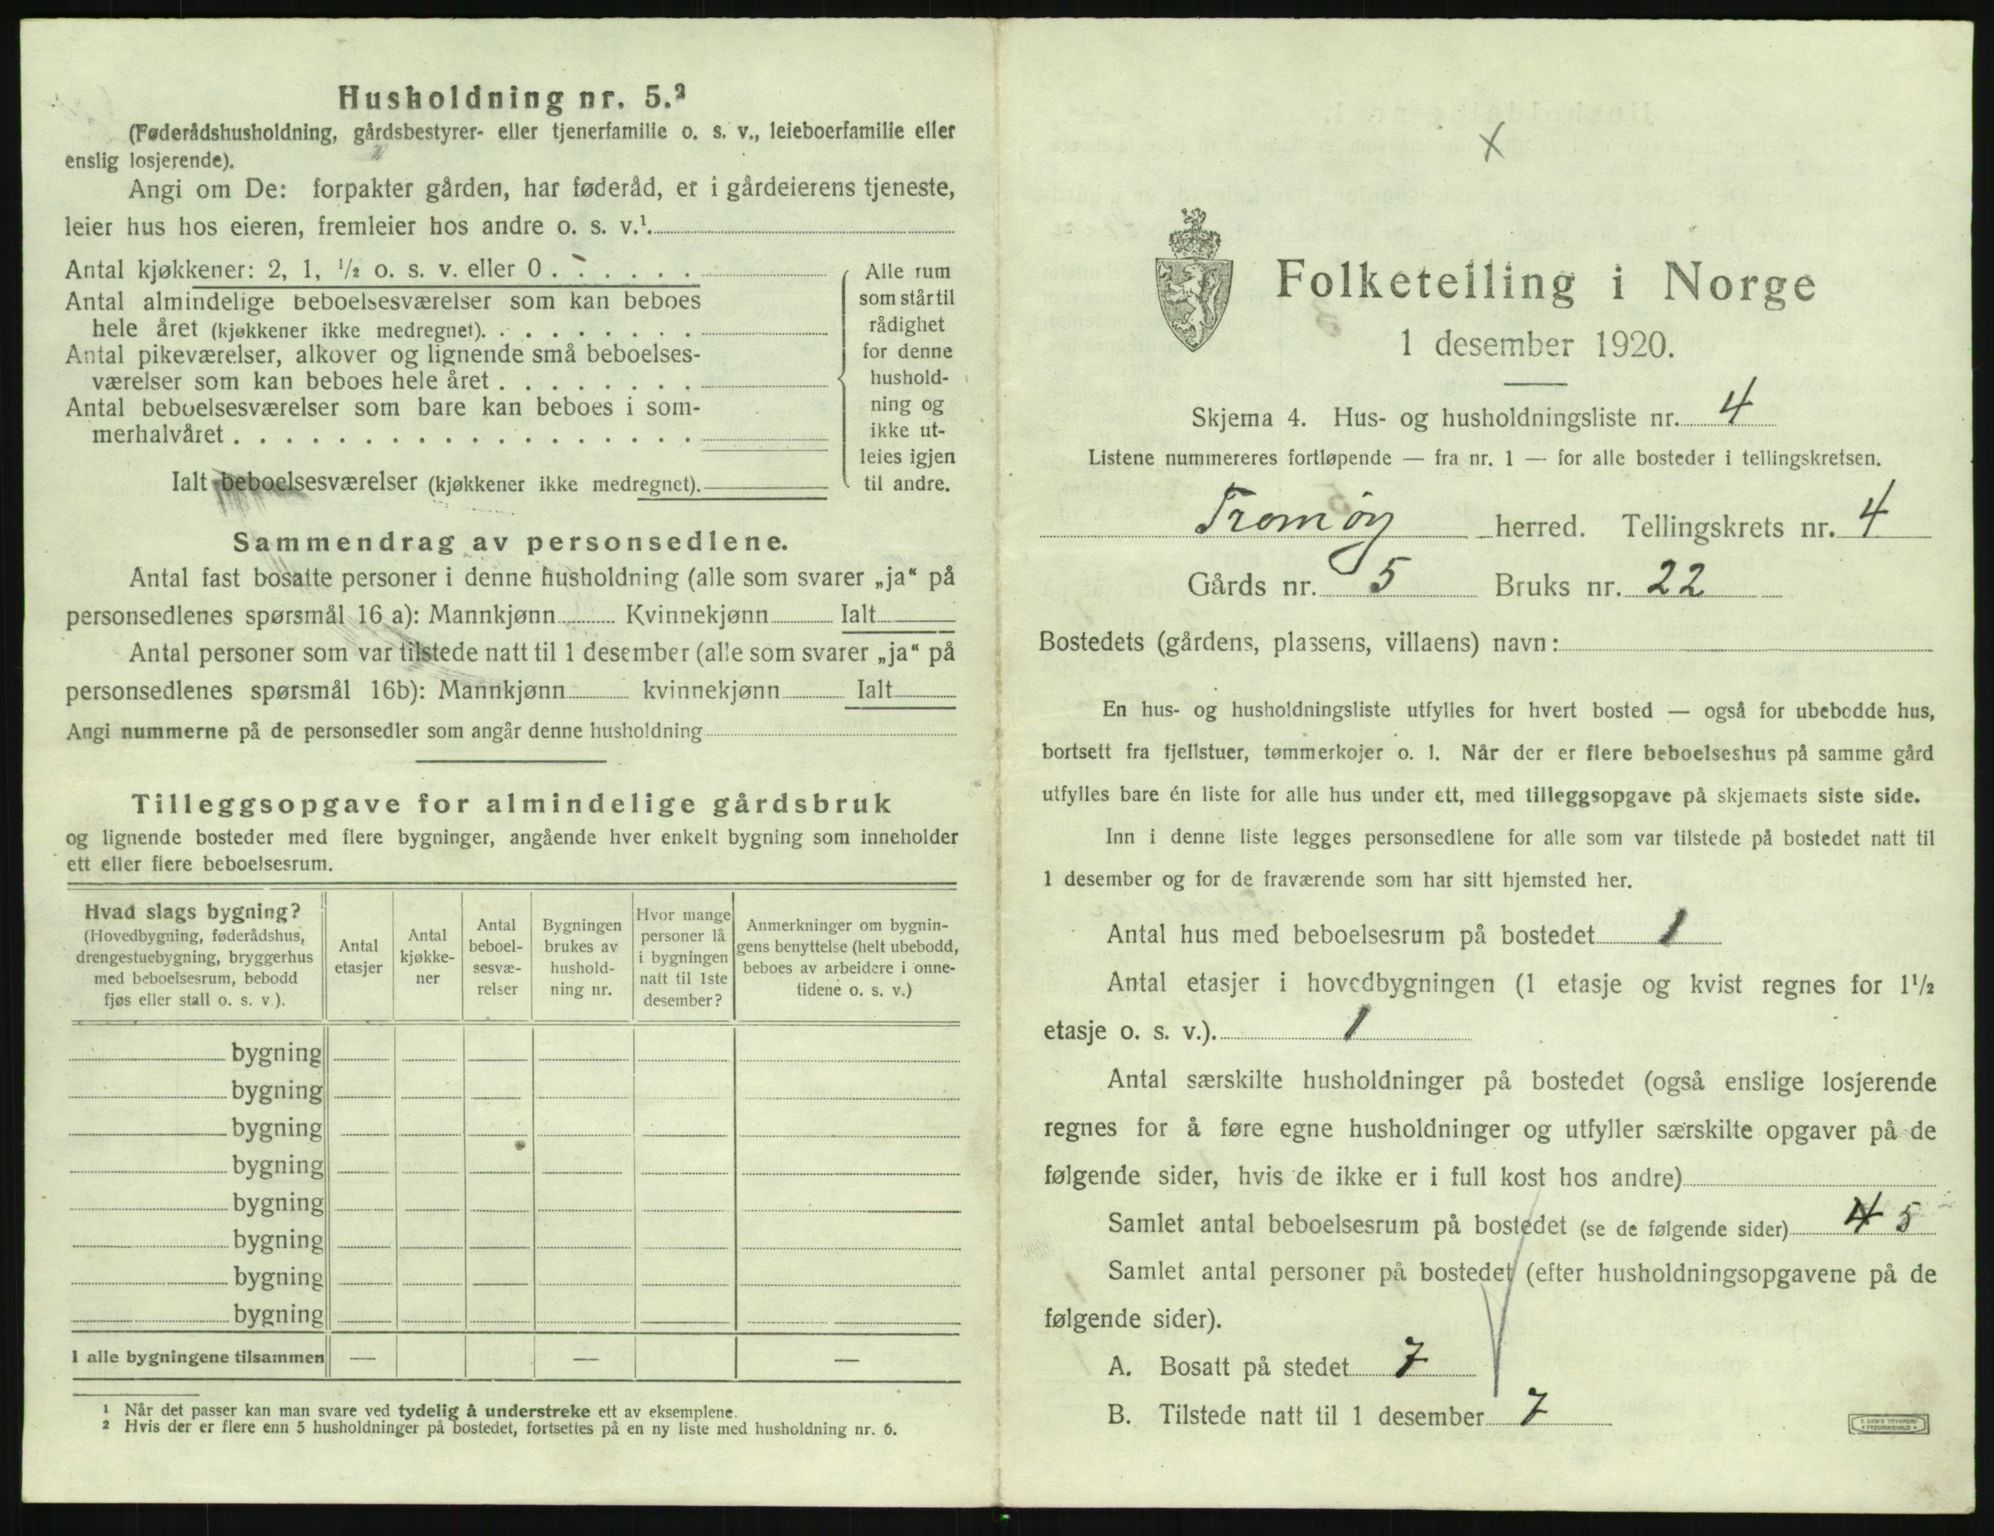 Husholdning nr. 5.²
(Føderådshusholdning, gårdsbestyrer- eller tjenerfamilie o. s. v., leieboerfamilie eller
enslig losjerende).
Angi om De: forpakter gården, har føderåd, er i gårdeierens tjeneste,
leier hus hos eieren, fremleier hos andre o. s. v.¹
Antal kjøkkener: 2, 1, ½ o. s. v. eller 0 . . . . . .
Antal almindelige beboelsesværelser som kan beboes
hele året (kjøkkener ikke medregnet). . . . . . . . .
Antal pikeværelser, alkover og lignende små beboelses-
værelser som kan beboes hele året . . . . . . . .
Antal beboelsesværelser som bare kan beboes i som-
merhalvåret . . . . . . . . . . . . . . . . . .
Ialt beboelsesværelser (kjøkkener ikke medregnet).
Alle rum
som står til
rådighet
for denne
hushold-
ning og
ikke ut-
leies igjen
til andre.
Sammendrag av personsedlene.
Antal fast bosatte personer i denne husholdning (alle som svarer „ja“ på
personsedlenes spørsmål 16 a): Mannkjønn Kvinnekjønn Ialt
Antal personer som var tilstede natt til 1 desember (alle som svarer „ja“ på
personsedlenes spørsmål 16b): Mannkjønn kvinnekjønn Ialt
Angi nummerne på de personsedler som angår denne husholdning
Tilleggsopgave for almindelige gårdsbruk
og lignende bosteder med flere bygninger, angående hver enkelt bygning som inneholder
ett eller flere beboelsesrum.
Hvad slags bygning?
(Hovedbygning, føderådshus,
drengestuebygning, bryggerhus
med beboelsesrum, bebodd
fjøs eller stall o. s. v.).
Antal
etasjer
Antal
kjøkke-
ner
Antal
beboel-
sesvæ-
relser
Bygningen
brukes av
hushold-
ning nr.
Hvor mange
personer lå
i bygningen
natt til 1ste
desember?
Anmerkninger om bygnin-
gens benyttelse (helt ubebodd,
beboes av arbeidere i onne-
tidene o. s. v.)
bygning
bygning
bygning
bygning
bygning
bygning
bygning
bygning
I alle bygningene tilsammen — — —
¹ Når det passer kan man svare ved tydelig å understreke ett av eksemplene.
² Hvis der er flere enn 5 husholdninger på bostedet, fortsettes på en ny liste med husholdning nr. 6.
x
Folketelling i Norge
1 desember 1920.
Skjema 4. Hus- og husholdningsliste nr. 4
Listene nummereres fortløpende — fra nr. 1 — for alle bosteder i tellingskretsen.
Tromøy herred. Tellingskrets nr. 4
Gårds nr. 5 Bruks nr. 22
Bostedets (gårdens, plassens, villaens) navn:
En hus- og husholdningsliste utfylles for hvert bosted — også for ubebodde hus,
bortsett fra fjellstuer, tømmerkojer o. l. Når der er flere beboelseshus på samme gård
utfylles bare én liste for alle hus under ett, med tilleggsopgave på skjemaets siste side.
Inn i denne liste legges personsedlene for alle som var tilstede på bostedet natt til
1 desember og for de fraværende som har sitt hjemsted her.
Antal hus med beboelsesrum på bostedet 1
Antal etasjer i hovedbygningen (1 etasje og kvist regnes for 1½
etasje o. s. v.). 1
Antal særskilte husholdninger på bostedet (også enslige losjerende
regnes for å føre egne husholdninger og utfyller særskilte opgaver på de
følgende sider, hvis de ikke er i full kost hos andre)
Samlet antal beboelsesrum på bostedet (se de følgende sider) 4 5
Samlet antal personer på bostedet (efter husholdningsopgavene på de
følgende sider).
A. Bosatt på stedet 7
B. Tilstede natt til 1 desember 7